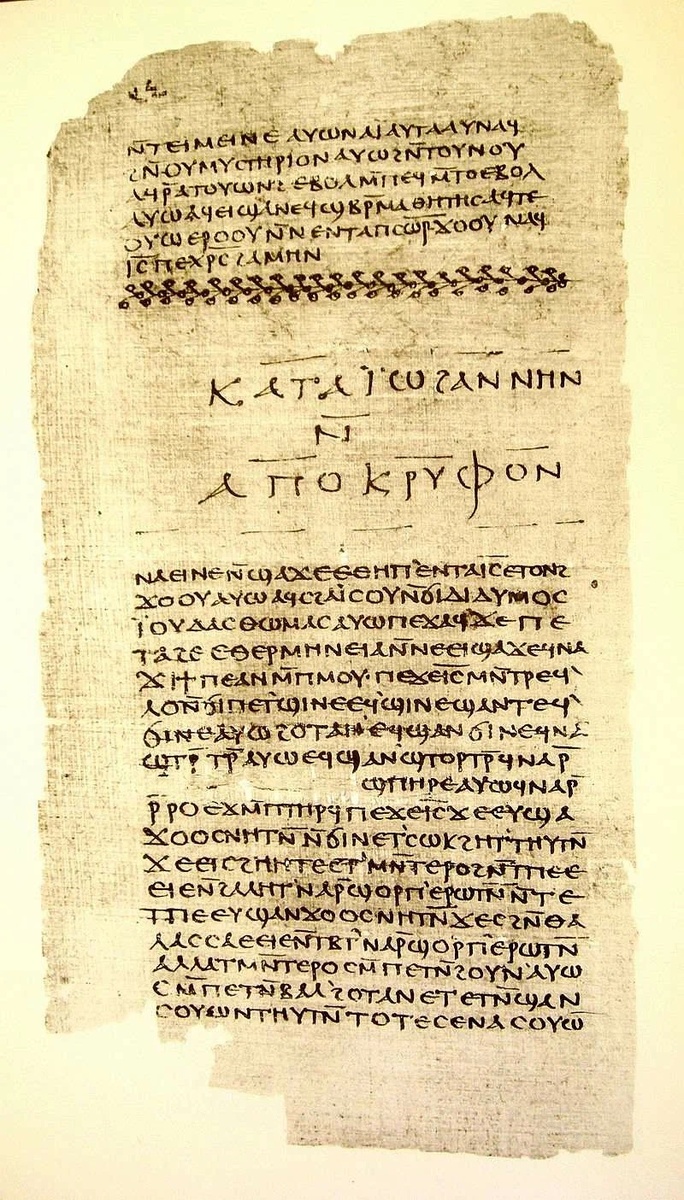 ⲛ̅ⲧⲉⲓⲙⲉⲓⲛⲉ ⲁⲩⲱ ⲛⲁⲓ̈ ⲁⲩⲧⲁⲁⲩ ⲛⲁϥ
ϩⲛ̅ⲟⲩⲙⲩⲥⲧⲏⲣⲓⲟⲛ ⲁⲩⲱ ϩⲛ̅ⲧⲟⲩⲛⲟⲩ
ⲁϥⲣ̅ⲁⲧⲟⲩⲱⲛϩ ⲉⲃⲟⲗ ⲙ̅ⲡⲉϥⲙ̅ⲧⲟ ⲉⲃⲟⲗ
ⲁⲩⲱ ⲁϥⲉⲓ ϣⲁⲛⲉϥϣⲃⲣ̅ⲙⲁⲑⲏⲧⲏⲥ ⲁϥⲧⲉ
ⲟⲩⲱ ⲉⲣⲟⲟⲩ ⲛ̅ⲛⲉⲛⲧⲁⲡⲥⲱ̅ⲣ̅ ϫⲟⲟⲩ ⲛⲁϥ
ⲓ̅ⲥ̅ ⲡⲉⲭ̅ⲣ̅ⲥ̅ ϩⲁⲙⲏⲛ
ⲕⲁⲧⲁ ⲓ̈ⲱϩⲁⲛⲛⲏⲛ
ⲛ̅
ⲁⲡⲟⲕⲣⲩⲫⲟⲛ
ⲛⲁⲉⲓ ⲛⲉ ⲛ̅ϣⲁϫⲉ ⲉⲑⲏⲡ ⲉⲛⲧⲁⲓ̅ⲥ̅ ⲉⲧⲟⲛϩ
ϫⲟⲟⲩ ⲁⲩⲱ ⲁϥⲥϩⲁⲓ̈ⲥⲟⲩ ⲛ̅ϭⲓ ⲇⲓⲇⲩⲙⲟⲥ
ⲓ̈ⲟⲩⲇⲁⲥ ⲑⲱⲙⲁⲥ ⲁⲩⲱ ⲡⲉϫⲁϥ ϫⲉ ⲡⲉ
ⲧⲁϩⲉ ⲉⲑⲉⲣⲙⲏⲛⲉⲓⲁ ⲛ̅ⲛⲉⲉⲓϣⲁϫⲉ ϥⲛⲁ
ϫⲓϯⲡⲉ ⲁⲛ ⲙ̅ⲡⲙⲟⲩ ⲡⲉϫⲉ ⲓ̅ⲥ̅ ⲙⲛ̅ⲧⲣⲉϥ
ⲗⲟ ⲛ̅ϭⲓ ⲡⲉⲧϣⲓⲛⲉ ⲉϥϣⲓⲛⲉ ϣⲁⲛⲧⲉϥ
ϭⲓⲛⲉ ⲁⲩⲱ ϩⲟⲧⲁⲛ ⲉϥϣⲁⲛϭⲓⲛⲉ ϥⲛⲁ
ϣⲧⲣ̅ⲧⲣ̅ ⲁⲩⲱ ⲉϥϣⲁⲛϣⲧⲟⲣⲧⲣ̅ ϥⲛⲁⲣ̅
ϣⲡⲏⲣⲉ ⲁⲩⲱ ϥⲛⲁⲣ̅
ⲣ̅ⲣⲟ ⲉϫⲙ̅ ⲡⲧⲏⲣϥ ⲡⲉϫⲉ ⲓ̅ⲥ̅ ϫⲉ ⲉⲩϣⲁ
ϫⲟⲟⲥ ⲛⲏⲧⲛ̅ ⲛ̅ϭⲓ ⲛⲉⲧⲥⲱⲕ ϩⲏⲧⲧⲏⲩⲧⲛ̅
ϫⲉ ⲉⲓⲥϩⲏⲏⲧⲉ ⲉⲧⲙⲛ̅ⲧⲉⲣⲟ ϩⲛ̅ ⲧⲡⲉ ⲉ
ⲉⲓⲉ ⲛ̅ϩⲁⲗⲏⲧ ⲛⲁⲣ̅ϣⲟⲣⲡ ⲉⲣⲱⲧⲛ̅ ⲛ̅ⲧⲉ
ⲧⲡⲉ ⲉⲩϣⲁⲛϫⲟⲟⲥ ⲛⲏⲧⲛ̅ ϫⲉ ⲥϩⲛ̅ ⲑⲁ
ⲗⲁⲥⲥⲁ ⲉⲉⲓⲉ ⲛ̅ⲧⲃⲧ ⲛⲁⲣ̅ϣⲟⲣⲡ ⲉⲣⲱⲧⲛ̅
ⲁⲗⲗⲁ ⲧⲙⲛ̅ⲧⲉⲣⲟ ⲥⲙ̅ⲡⲉⲧⲛ̅ϩⲟⲩⲛ ⲁⲩⲱ
ⲥⲙ̅ⲡⲉⲧⲛ̅ⲃⲁⲗ ϩⲟⲧⲁⲛ ⲉⲧⲉⲧⲛ̅ϣⲁⲛ
ⲥⲟⲩⲱⲛ ⲧⲏⲩⲧⲛ̅ ⲧⲟⲧⲉ ⲥⲉⲛⲁⲥⲟⲩⲱ